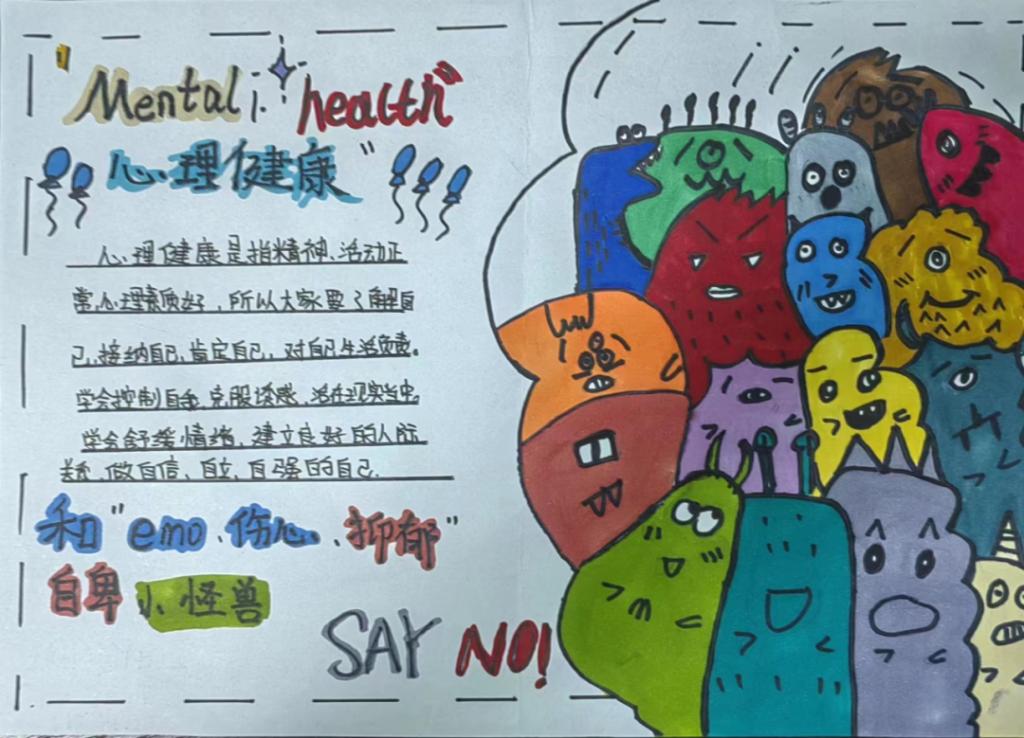 "Mental health"
心理健康"
心理健康是指精神、活动正
常、心理素质好,所以大家要了解自
己,接纳自己,肯定自己,对自己生活负责。
学会控制自我,克服诱惑,活在现实当中,
学会舒缓情绪,建立良好的人际
关系,做自信、自立、自强的自己.
和"emo、伤心、抑郁"
自卑 小怪兽
SAY NO!